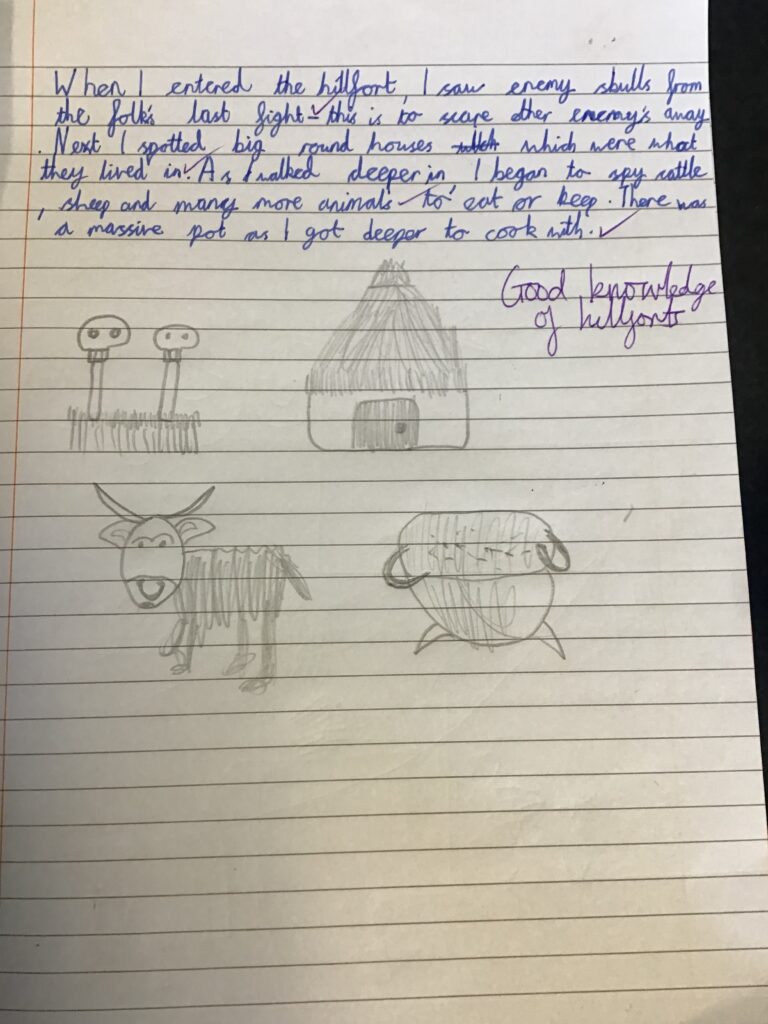 When I entered the hillfort, I saw enemy skulls from
the folk's last fight - this is to scare other enemy's away
. Next I spotted big round houses which were what
they lived in. As I walked deeper in I began to spy cattle
, sheep and many more animals to eat or keep. There was
a massive pot as I got deeper to cook with.
Good knowledge
of hillforts